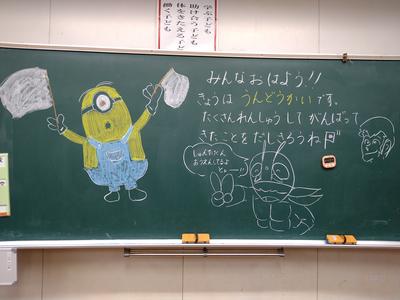 学ぶ子ども
助け合う子ども
体をきたえる子ども
働く子ども
みんなおはよう!!
きょうは うんどうかいです。
たくさんれんしゅうして がんばって
きたことをだしきろうね
おうえんしてるよ